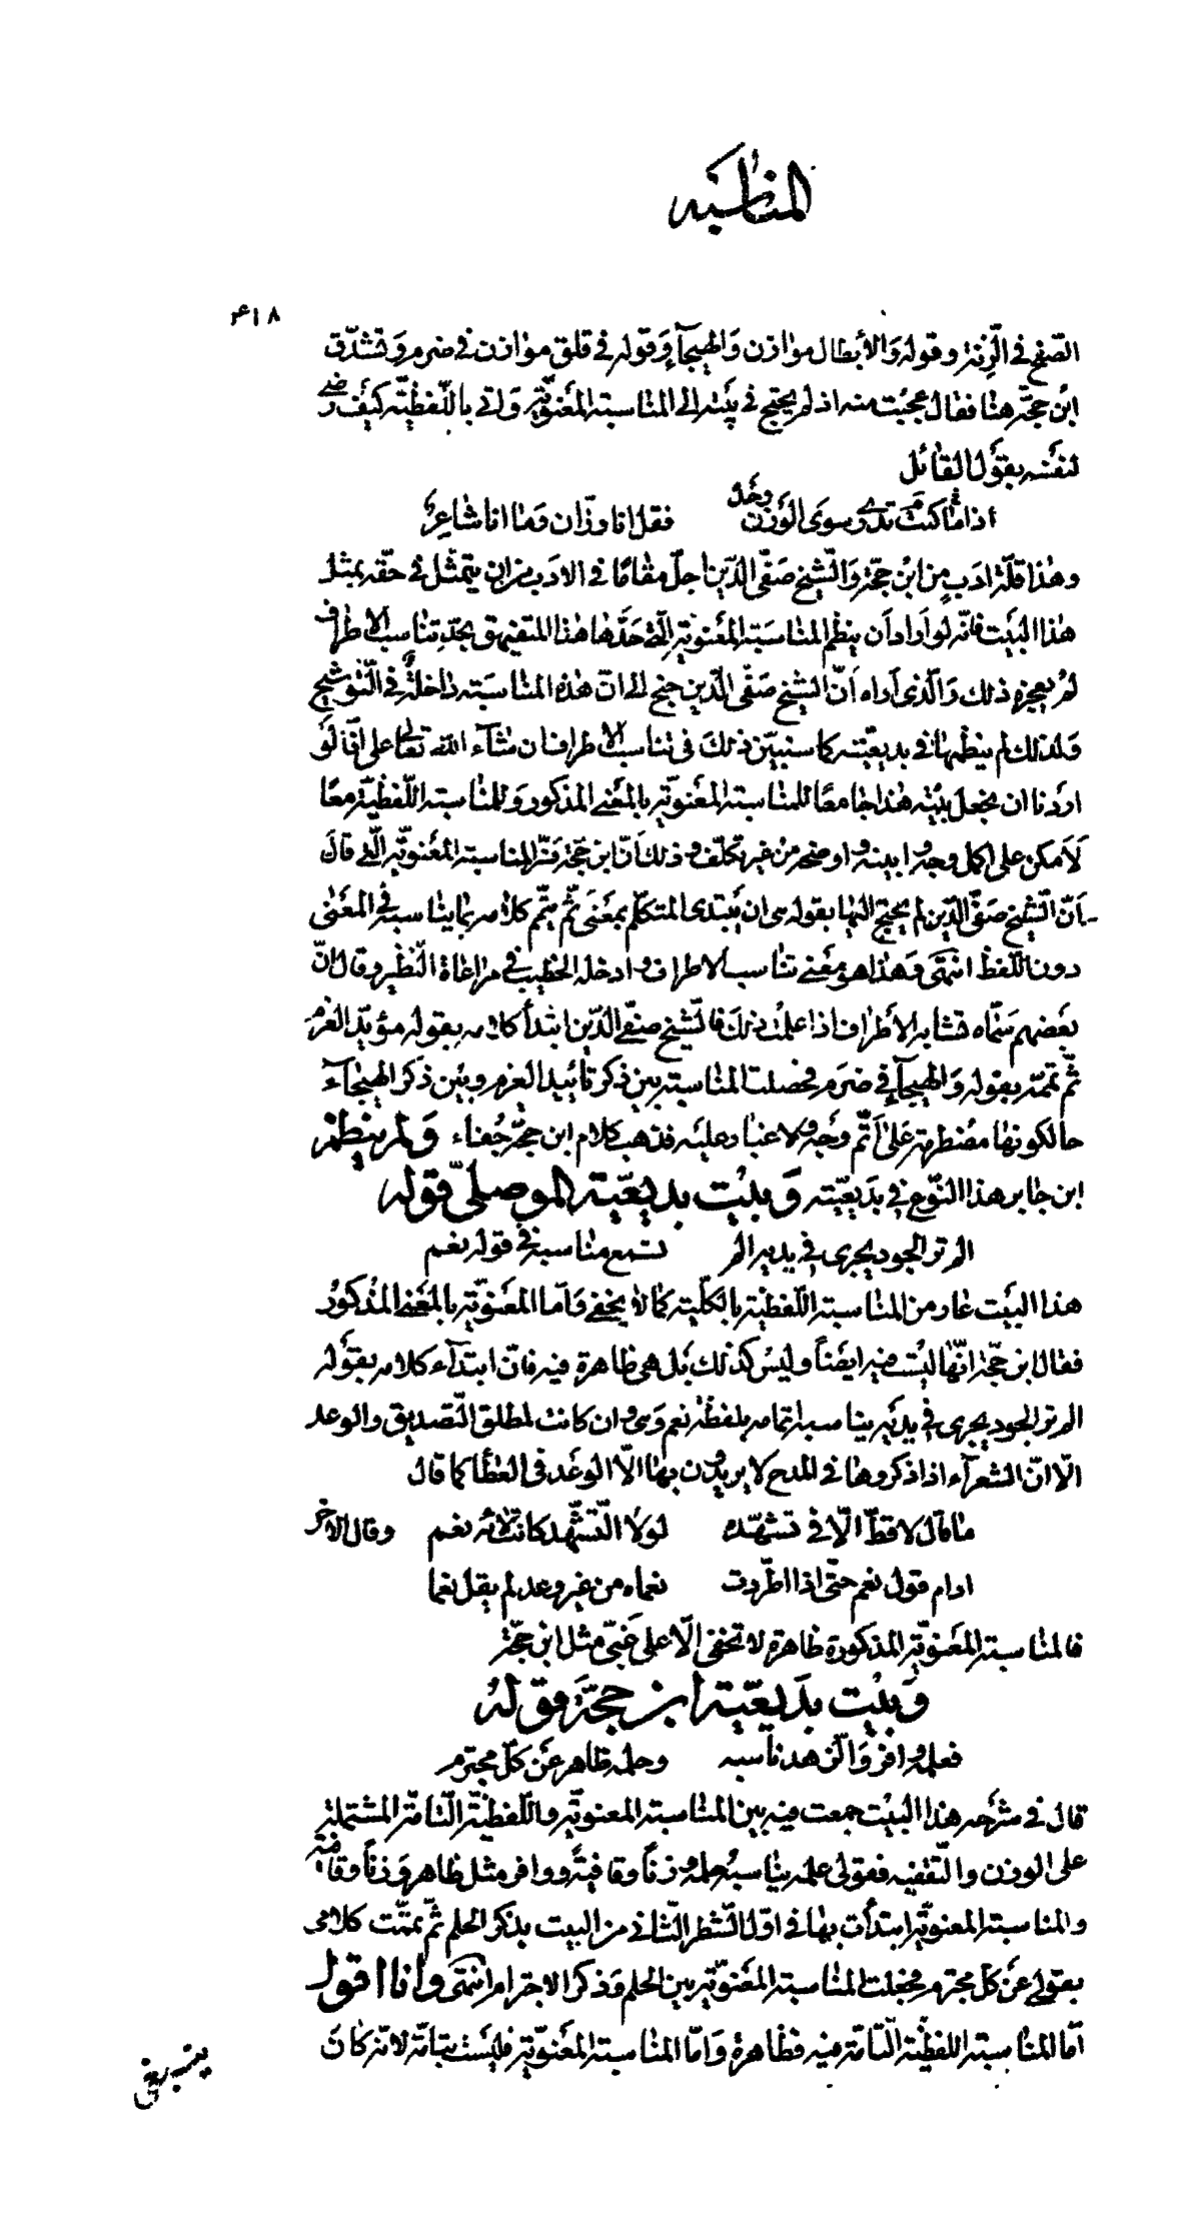 المناسبه
۴۱۸
الصّفح في الزّنة وقوله والأبطال موازن والهيجآء وقوله في قلق موازن في ضرم وتشدّق
ابن حجّة هنا فقال عجبت منه اذ لم يحتج في بيته الى المناسبة المعنويّة واتى باللّفظيّة كيف رضى
لنفسه بقول القائل
اذا ما كنت تدرى سوى الوزن وحده فقل انا وزّان وما انا شاعر
وهذا قلّة ادب من ابن حجّة والشّيخ صفّى الدّين اجلّ مقامًا في الادب من ان يتمثّل في حقّه بمثل
هذا البيت فانّه لو اراد ان ينظم المناسبة المعنوية الّتى حدّها هذا المتفيهق بحدّ تناسب الاطراف
لم يعجزه ذلك والّذى اراه انّ الشّيخ صفّى الدّين جنح الى انّ هذه المناسبة داخلة في التّوشيح
ولذلك لم ينظمها في بديعيّته كما سنبيّن ذلك في تناسب الاطراف ان شآء الله تعالى على انّا لو
اردنا ان نجعل بيته هذا جامعًا للمناسبة المعنويّة بالمعنى المذكور وللمناسبة اللّفظيّة معًا
لأمكن على اكمل وجه وابينه واوضحه من غير تكلّف وذلك انّ ابن حجّة فسّر المناسبة المعنويّة الّتى قال
انّ الشّيخ صفّى الدّين لم يحتج اليها بقوله هى ان يبتدى المتكلّم بمعنى ثمّ يتمّم كلامه بما يناسبه في المعنى
دون اللّفظ انتهى وهذا هو معنى تناسب الاطراف وادخله الخطيب في مراعاة النّظير وقال انّ
بعضهم سمّاه تشابه الاطراف اذا علمت ذلك فالشّيخ صفّى الدّين ابتدأ كلامه بقوله مؤيّد العزم
ثمّ تمّمه بقوله والهيجآء في ضرم فحصلت المناسبة بين ذكر تأييد العزم وبين ذكر الهيجآء
حالكونها مضطرمة على اتّم وجه ولا غبار عليه فذهب كلام ابن حجّة جفاء ولم ينظم
ابن جابر هذا النّوع في بديعيّته وبيت بديعيّة الموصلّى قوله
الم تر الجود يجرى في يديه الم تسمع مناسبة في قوله نعم
هذا البيت عار من المناسبة اللّفظيّة بالكلّية كما لا يخفى وامّا المعنويّة بالمعنى المذكور
فقال ابن حجّة انّها ليست فيه ايضاً وليس كذلك بل هى ظاهرة فيه فانّ ابتدآء كلامه بقوله
الم تر الجود يجرى في يديه يناسبه اتمامه بلفظة نعم وهى وان كانت لمطلق التّصديق والوعد
الّا انّ الشعرآء اذا ذكروها في المدح لا يريدون بها الّا الوعد في العطا كما قال
ما قال لا قطّ الّا في تشهّده لولا التّشهّد كانت لاؤه نعم وقال الآخر
ادام قول نعم حتّى اذا اطّردت نعماه من غير وعد لم يقل نعما
فالمناسبة المعنويّة المذكورة ظاهرة لا تخفى الّا على غبىّ مثل ابن حجّة
وبيت بديعيّة ابن حجّة قوله
فعلمه وافر والزّهد ناسبه وحلمه ظاهر عن كلّ مجترم
قال في شرحه هذا البيت جمعت فيه بين المناسبة المعنويّة واللّفظيّة التّامّة المشتملة
على الوزن والتّقفيه فقولى علمه يناسبه حلمه وزناً وقافيةً ووافر مثل ظاهر وزناً وقافية
والمناسبة المعنويّة ابتدأت بها في اوّل الشّطر الثّانى من البيت بذكر الحلم ثمّ تمّمت كلامى
بقولى عن كلّ مجترم فحصلت المناسبة المعنويّة بين الحلم وذكر الاجترام انتهى وانا اقول
امّا المناسبة اللفظيّة التّامّة فيه فظاهرة وامّا المناسبة المعنويّة فليست بتامّة لانّه كان